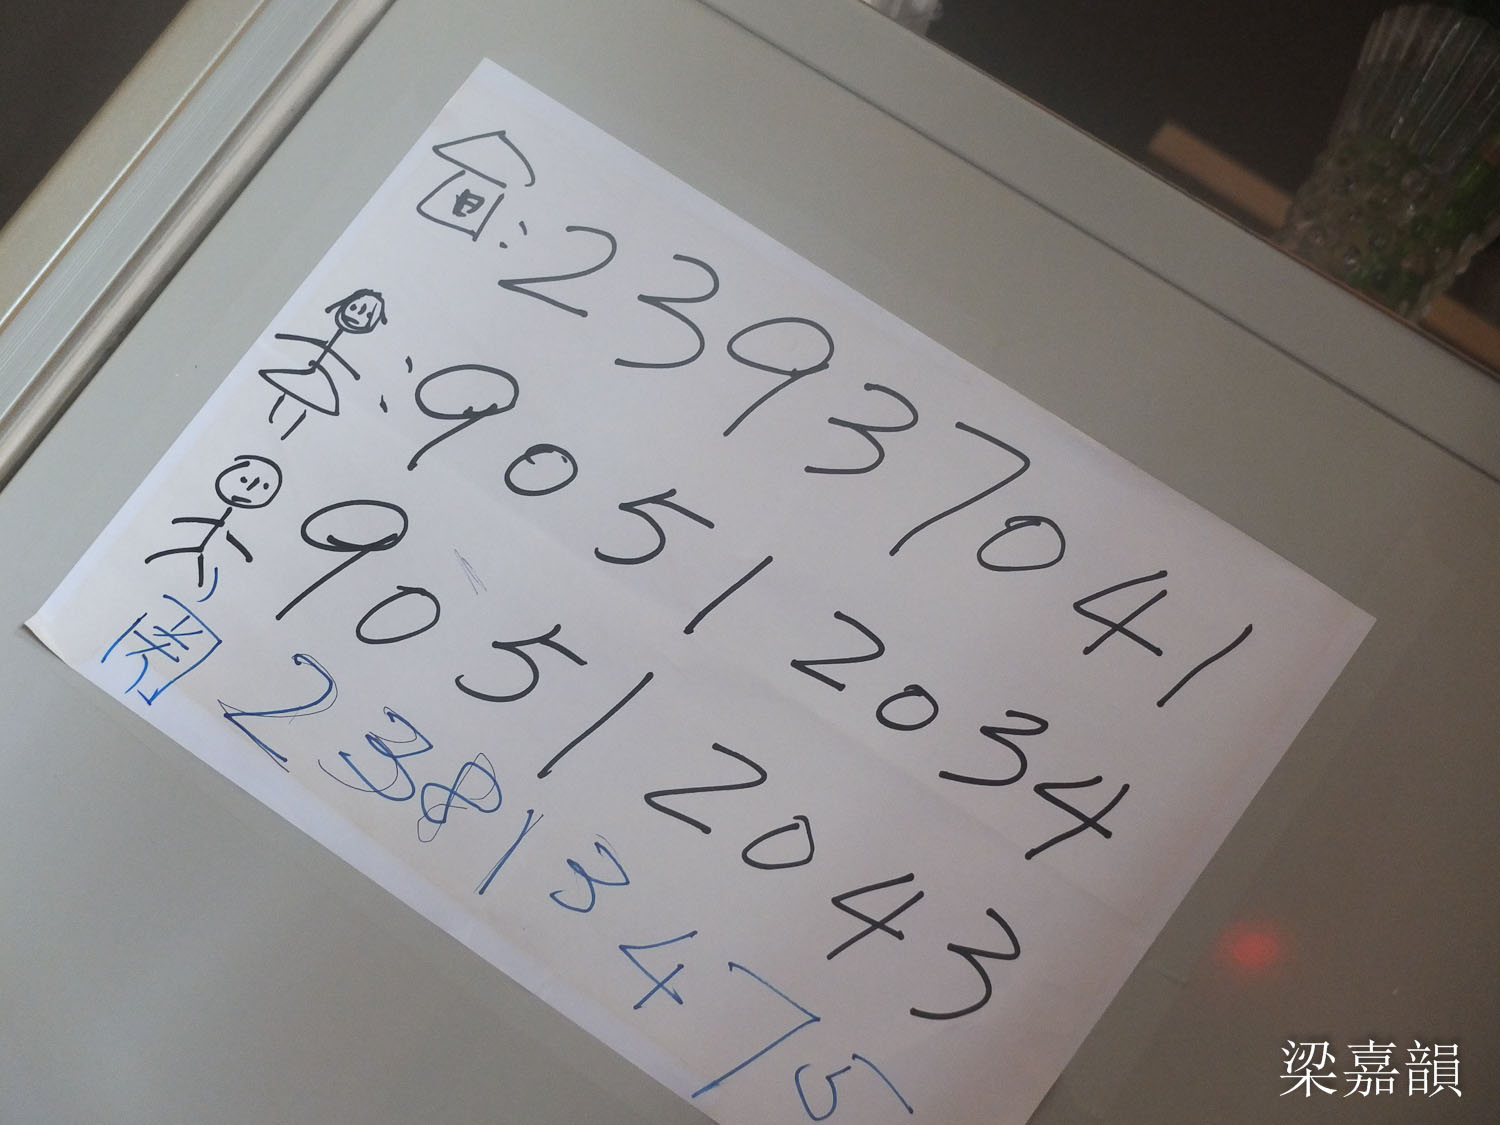 : 23937041
: 90512034
90512043
23813475
梁嘉韻